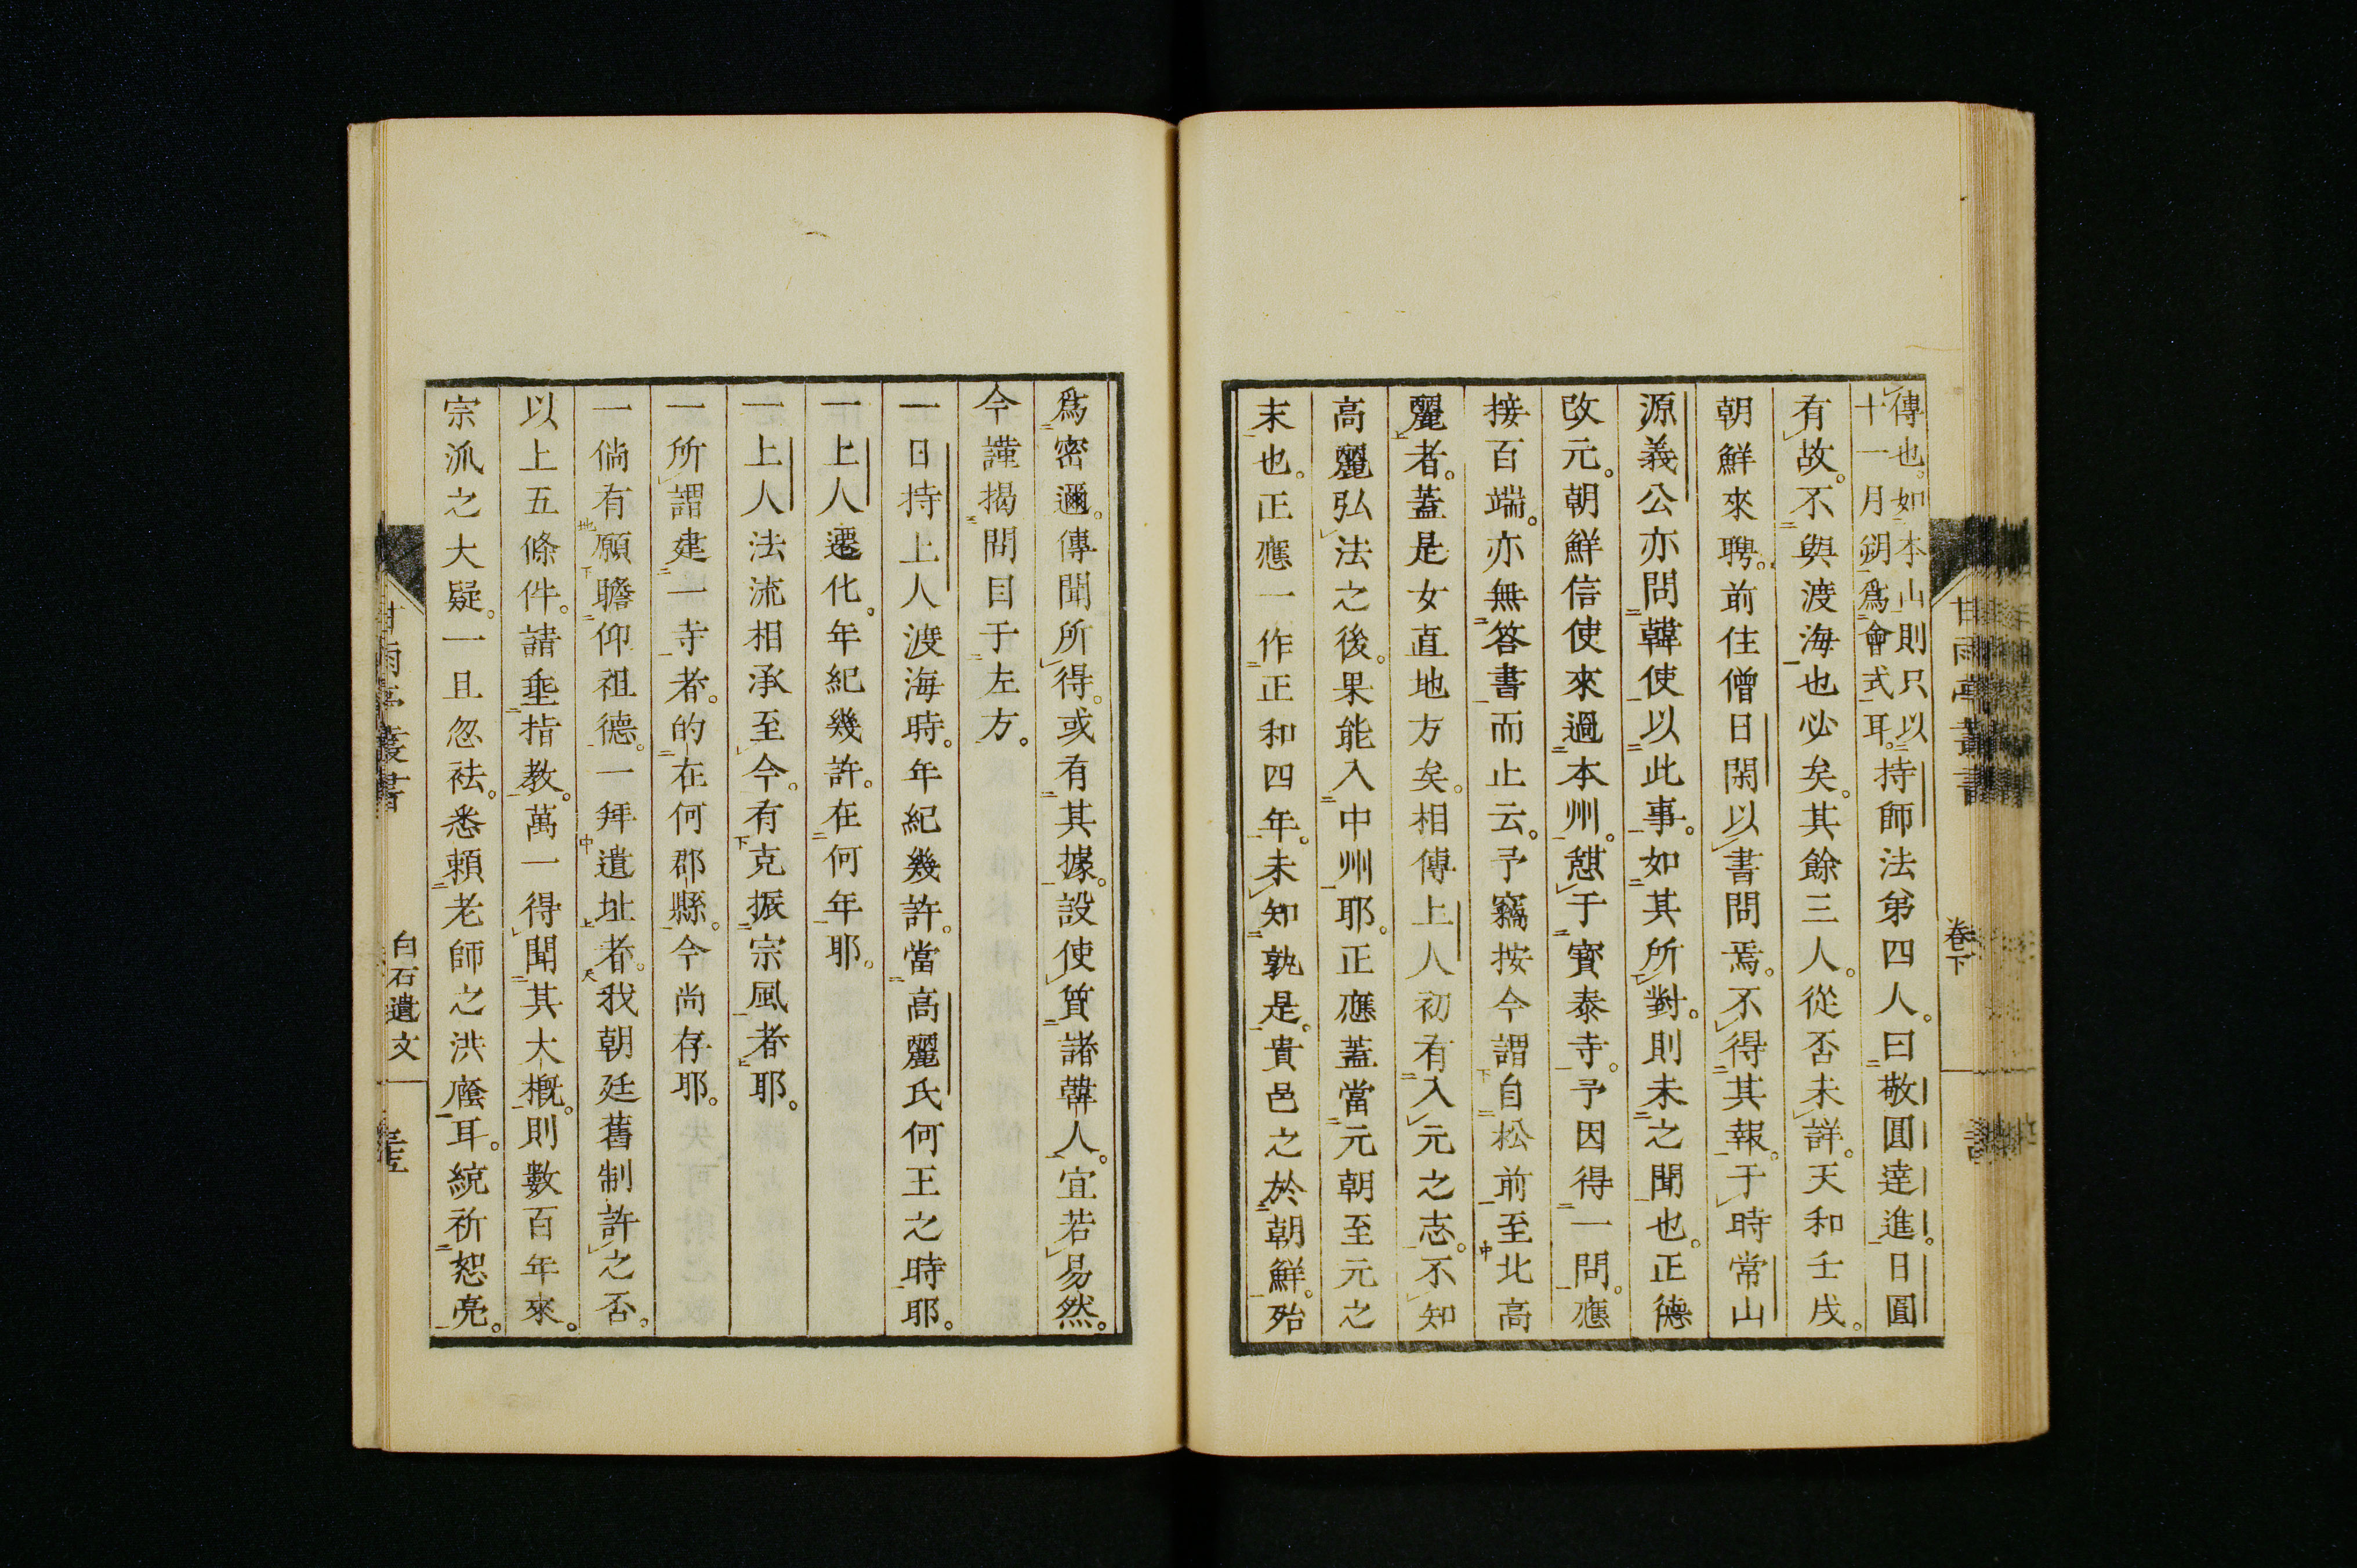 甘雨亭叢書
卷下
傳也。如本山則只以
十一月朔爲會式耳。持師法弟四人。曰敬圓達進。日圓
有故。不與渡海也必矣。其餘三人。從否未詳。天和壬戌。
朝鮮來聘。前住僧日閑以書問焉。不得其報。于時常山
源義公亦問韓使以此事。如其所對。則未之聞也。正德
改元。朝鮮信使來過本州。憇于寳泰寺。予因得一問。應
接百端。亦無答書而止云。予竊按今謂自松前至北高
麗者。蓋是女直地方矣。相傳上人初有入元之志。不知
高麗弘法之後。果能入中州耶。正應蓋當元朝至元之
末也。正應一作正和四年。未知孰是。貴邑之於朝鮮。殆
爲密邇。傳聞所得。或有其據。設使質諸韓人。宜若易然。
今謹揭問目于左方。
一日持上人渡海時。年紀幾許。當高麗氏何王之時耶。
一上人遷化。年紀幾許。在何年耶。
一上人法流相承至今。有克振宗風者耶。
一所謂建一寺者。的在何郡縣。今尚存耶。
一倘有願瞻仰祖德。一拜遺址者。我朝廷舊制許之否。
以上五條件。請垂指教。萬一得聞其大概。則數百年來。
宗派之大疑。一旦忽袪。悉賴老師之洪廕耳。統祈恕亮。
甘雨亭叢書
白石遺文